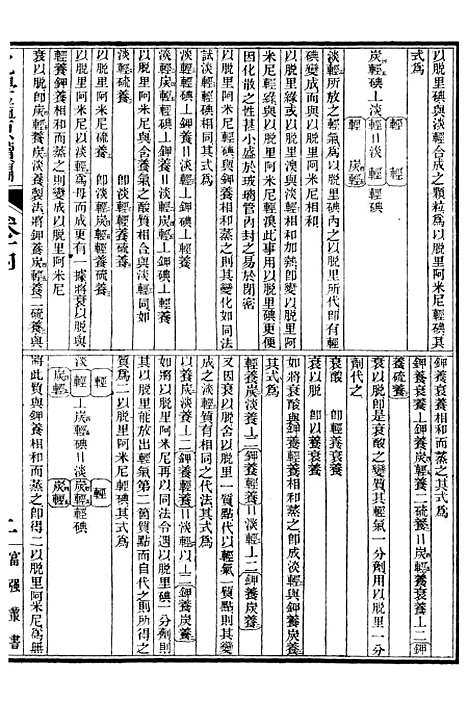 式爲
以脱里碘與淡輕合成之顆粒爲以脱里阿米尼輕碘其
炭輕碘⊥淡輕輕輕＝淡輕輕炭輕輕碘
淡輕所放之輕氣爲以脱里碘內之以脱里所代卽有輕
碘變成而與以脱里阿米尼相和
以脱里綠或以脱里溴與淡輕相和加熱卽變以脱里阿
米尼輕綠與以脱里阿米尼輕溴此事用以脱里碘更便
因化散之性甚小盛於玻璃管內封之易於閉密
以脱里阿米尼輕碘與鉀養相和蒸之則其變化如同法
試淡輕輕碘相同其式爲
淡輕輕碘⊥鉀養＝淡輕⊥鉀碘⊥輕養
淡輕炭輕輕碘⊥鉀養＝淡輕炭輕⊥鉀碘⊥輕養
以脱里阿米尼與含養氣之酸質相合與淡輕同如
淡輕硫養　卽淡輕養硫養
以脱里阿米尼硫養　卽以脱里阿米尼輕養硫養
以脱里阿米尼內以淡輕爲母而成更有一據將衰以脱與
輕養鉀養相和而蒸之則變成以脱里阿米尼
衰以脱卽炭輕養炭淡養製法將鉀養炭輕養二硫養與
鉀養衰養相和而蒸之其式爲
鉀養衰養⊥鉀養炭輕養二硫養＝炭輕養衰養⊥二鉀
養硫養
衰以脱卽是衰酸之變質其輕氣一分劑用以脱里一分
劑代之
衰酸　卽輕養衰養
衰以脱　卽以養衰養
如將衰酸與鉀養輕養相和蒸之卽成淡輕與鉀養炭養
其式爲
輕養炭淡養⊥二鉀養輕養＝淡輕⊥二鉀養炭養
又因衰以脱含以脱里一質點代輕氣一質點則其變
成之淡輕質有相同之代法其式爲
以養炭淡養⊥二鉀養輕養＝淡輕以⊥二鉀養炭養
如將以脱里阿米尼再以同法令遇以脱里碘一分劑則
其以脱里能放出輕氣第二箇質點而自代之則所得之
質爲二以脱里阿米尼輕碘其式爲
淡輕輕炭輕⊥炭輕碘＝淡輕炭輕炭輕輕碘
將此質與鉀養相和而蒸之卽得二以脱里阿米尼爲無
富强叢書